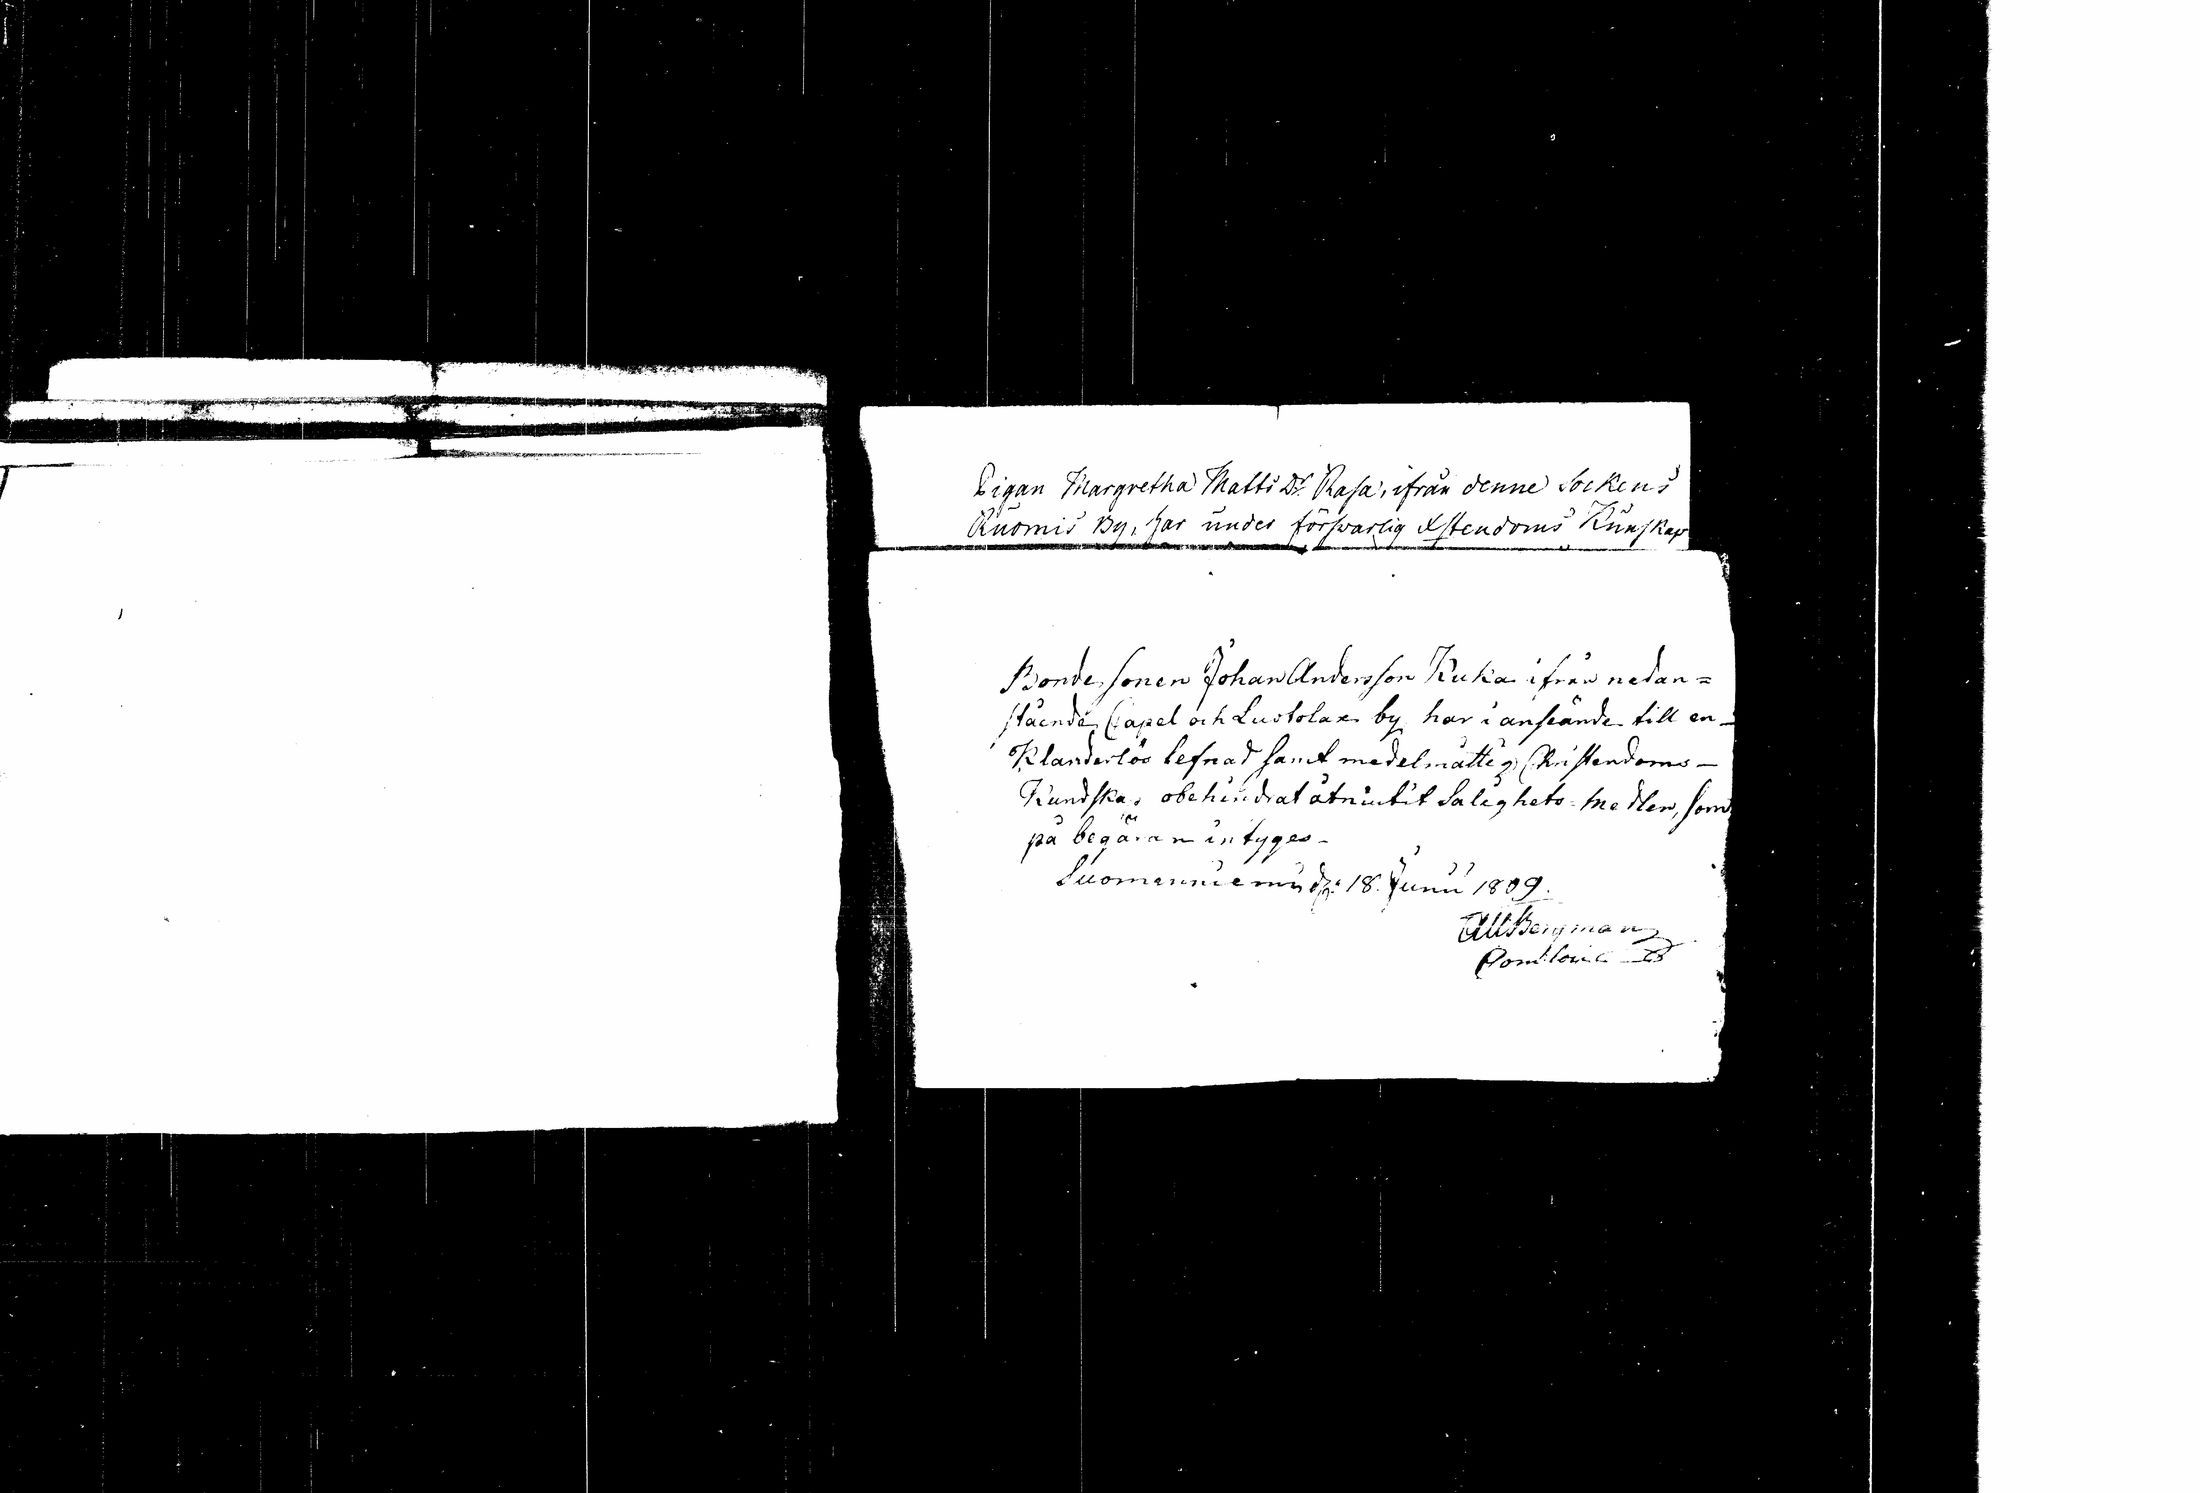 Pigan Margretha Matts Dr. Rasa, ifrån denne Sockens
Kuomis By, har under försvarlig Xstendoms Kunskap
Bonde sonen Johan Andersson Kuka ifrån nedan=
stående Capel och Lustolax by har i anseände till en
Klanderlös lefnad samt medelmåttig Christendoms-
Kundskap obehindrat åtniutit Salighets-medlen, som
på begäran intyges-
Suomenniemi d. 18. Junii 1809.
Bergman